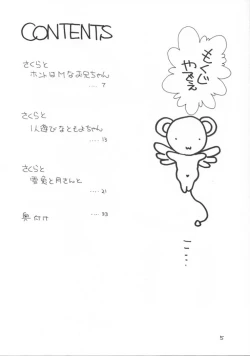 CONTENTS
もくじ
やでえ
さくらと
ホントはMなお兄ちゃん
.... 7
さくらと
1人遊びなともよちゃん
.... 13
さくらと
雪兎と月さんと
.... 21
奥付け
.... 33
5